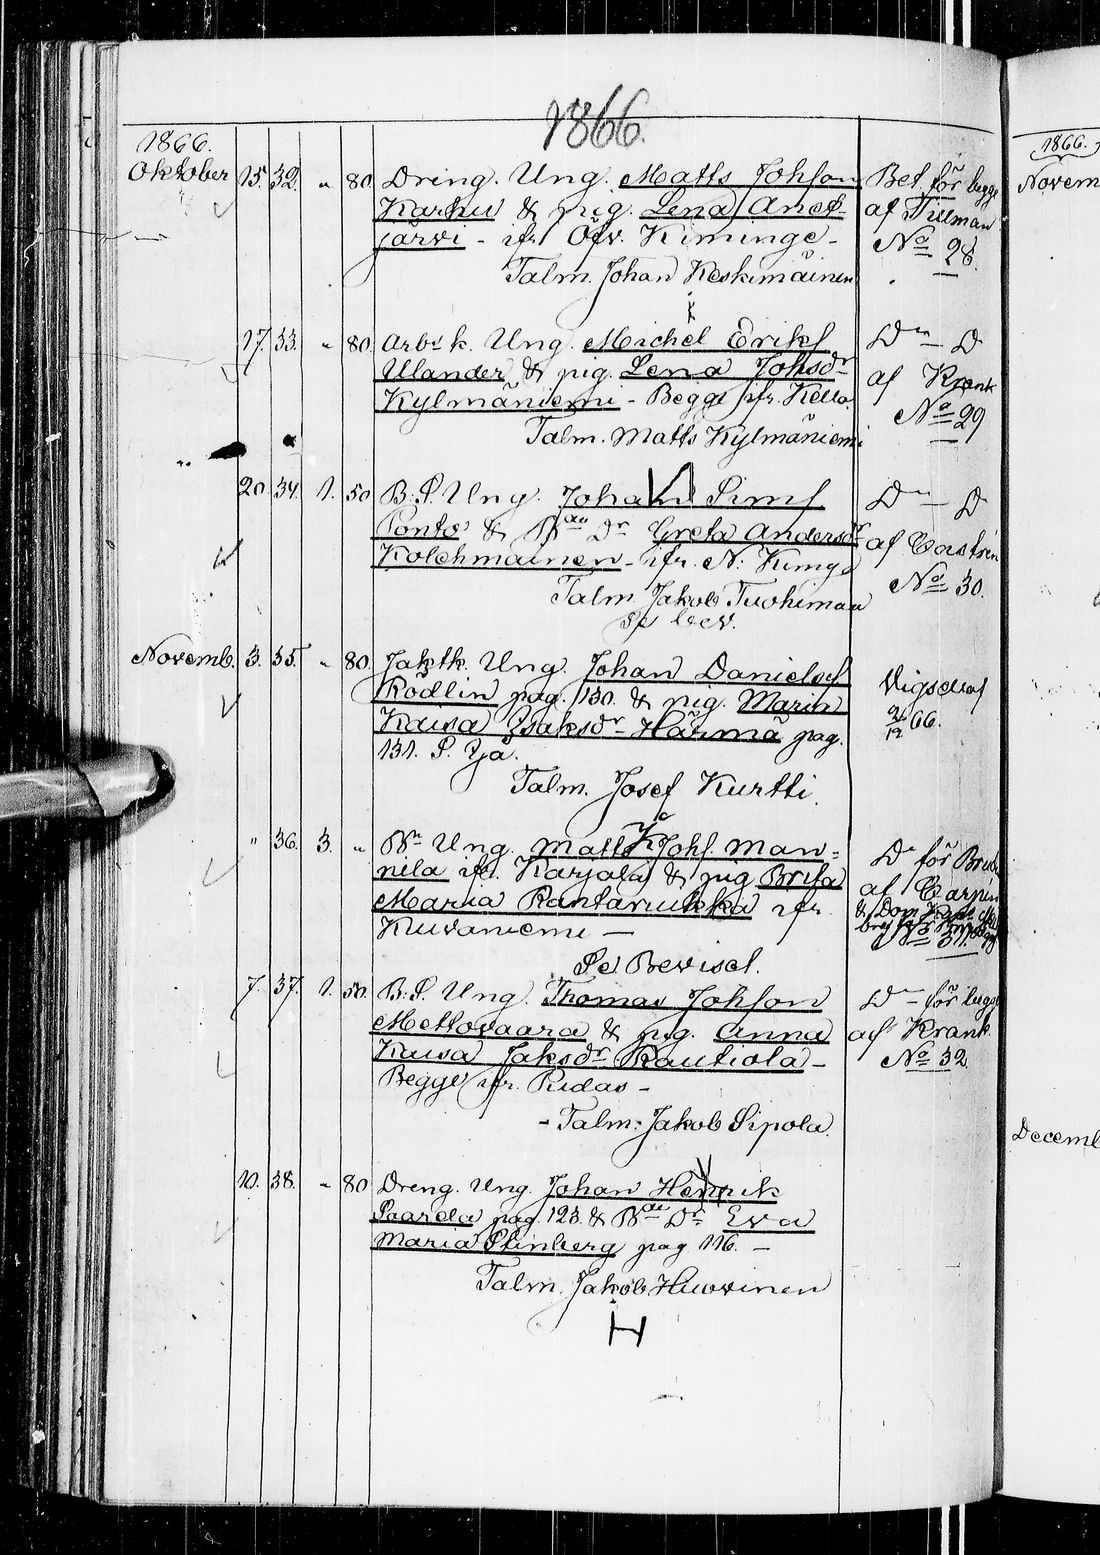 1866.
1866.
Oktober 15. 32. " 80. Dreng. Ung. Matts Johsson Bet. för begge
Karhu & pig. Lena Anet- af Tillman
järvi - ifr. Öfv. Kiminge - No 28.
Talm. Johan Keskimäinen
17. 33. " 80. Arbsk. Ung. Michel Eriks. Do - D
Ulander & pig. Lena Johsdr af Krank
Kylmäniemi - Begge ifr. Kello. No 29
Talm. Matts Kylmäniemi
20. 34. 1. 50. B. S. Ung. Johan Sims. Do - D
Ponto & Bde Dr Greta Andersdr af Castrén
Kolehmainen - ifr. N. Kimge No 30.
Talm. Jakob Tuohimaa
se bev.
Novemb. 3. 35. " 80. Ung. Johan Danielss.
Rödlin pag. 130. & pig. Maria Vigde af
Kaisa Isaksdr Härmä pag. 2/12 66.
131. S. Ijå.
Talm. Josef Kurtti.
" 36. 3. " Bn Ung. Matts Johs. Man-
nila ifr. Karjala & pig Brita Do för Brud
Maria Rantaruikka ifr. af Carpén
Kuivaniemi — & Dom
No 31.
Se Beviset.
7. 37. 1. 50. B. S. Ung. Thomas Johsson Do - för begge
Mettovaara & pig. Anna af Krank
Kaisa Jaksdr Rautiola - No 32.
Begge ifr. Pudas -
- Talm: Jakob Sipola.
10. 38. " 80 Dreng. Ung. Johan Henrik
Saarela pag. 123. & Bde Dr Eva
Maria Stenberg pag 116. —
Talm. Jakob Huovinen
H
1866.
Novem
Decemb